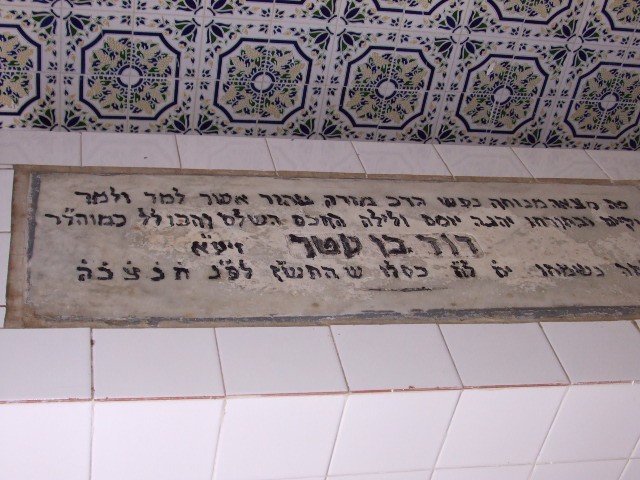 פה מצאה מנוחה נפש הרב מזרע טהור אשר למד ולמד
וקיים ובתורתו יהגה יומם ולילה החכם השלם והכולל כמוהר״ר
דוד בן עטר זיע״א
נשמתו כסלו ש׳ התש״ז ת׳נ׳צ׳ב׳ה׳